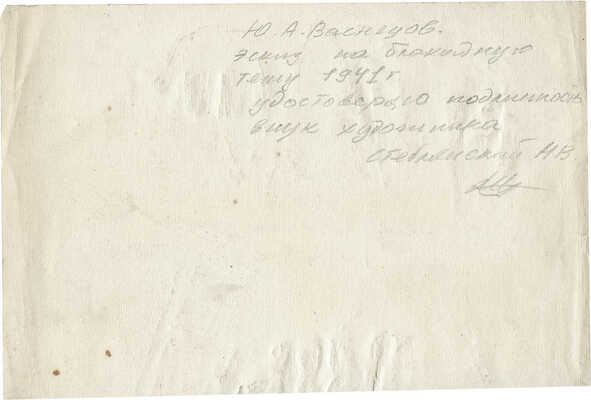 Ю. А. Васнецов.
Эскиз на блокадную
тему 1941 г
удостоверяю подлинность
внук художника
Стебленский Н В.